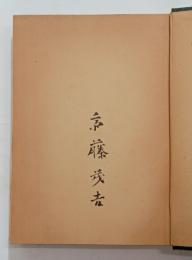 斎藤茂吉